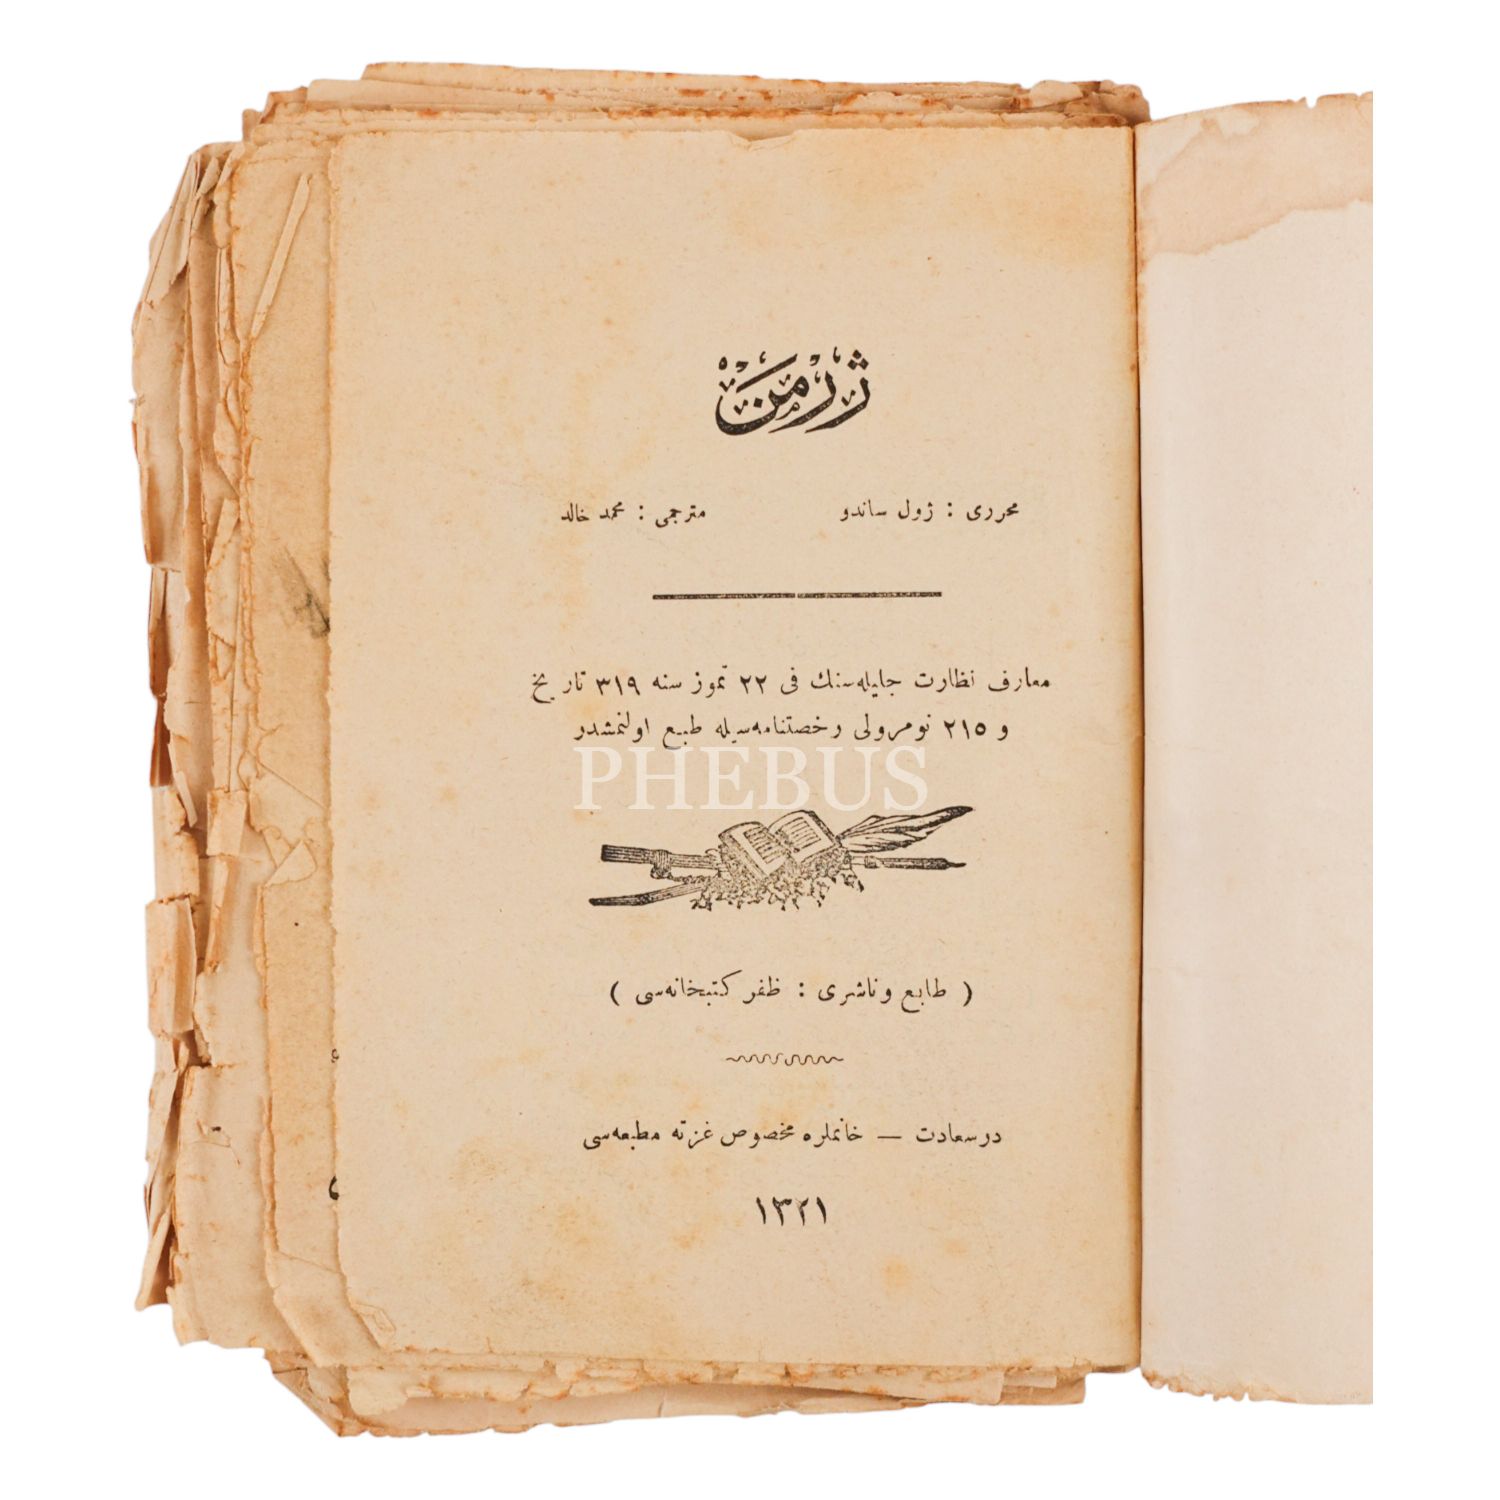 ژرمن
محرری : ژول ساندو
مترجمی : محمد خالد
معارف نظارت جلیله‌سنك فی ٢٢ تموز سنه ٣١٩ تاریخ
و ٢١٥ نومرولی رخصتنامه‌سیله طبع اولنمشدر
PHEBUS
( طابع و ناشری : ظفر كتبخانه‌سی )
درسعادت — خانملره مخصوص غزته مطبعه‌سی
١٣٢١